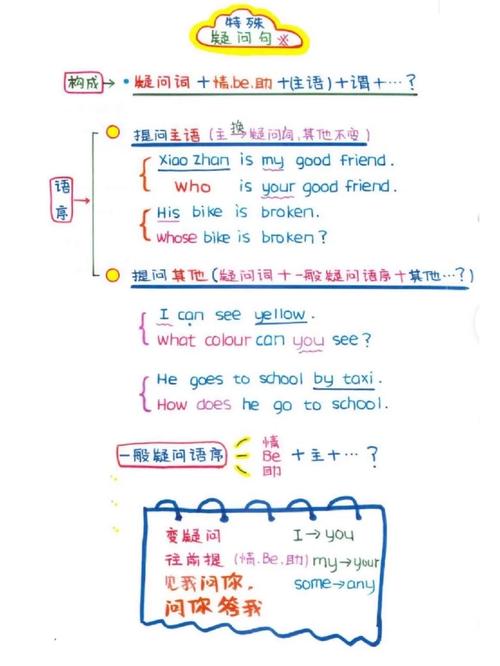 特殊
疑问句※
构成→•疑问词+情.be.助+(主语)+谓+…?
语序→
提问主语(主换→疑问词,其他不变)
Xiao Zhan is my good friend.
Who is your good friend.
His bike is broken.
whose bike is broken?
提问其他(疑问词+一般疑问语序+其他…?)
I can see yellow.
What colour can you see?
He goes to school by taxi.
How does he go to school.
一般疑问语序 情 Be 助 +主+…?
变疑问 I→you
往前提(情.Be.助) my→your
见我问你, some→any
问你答我